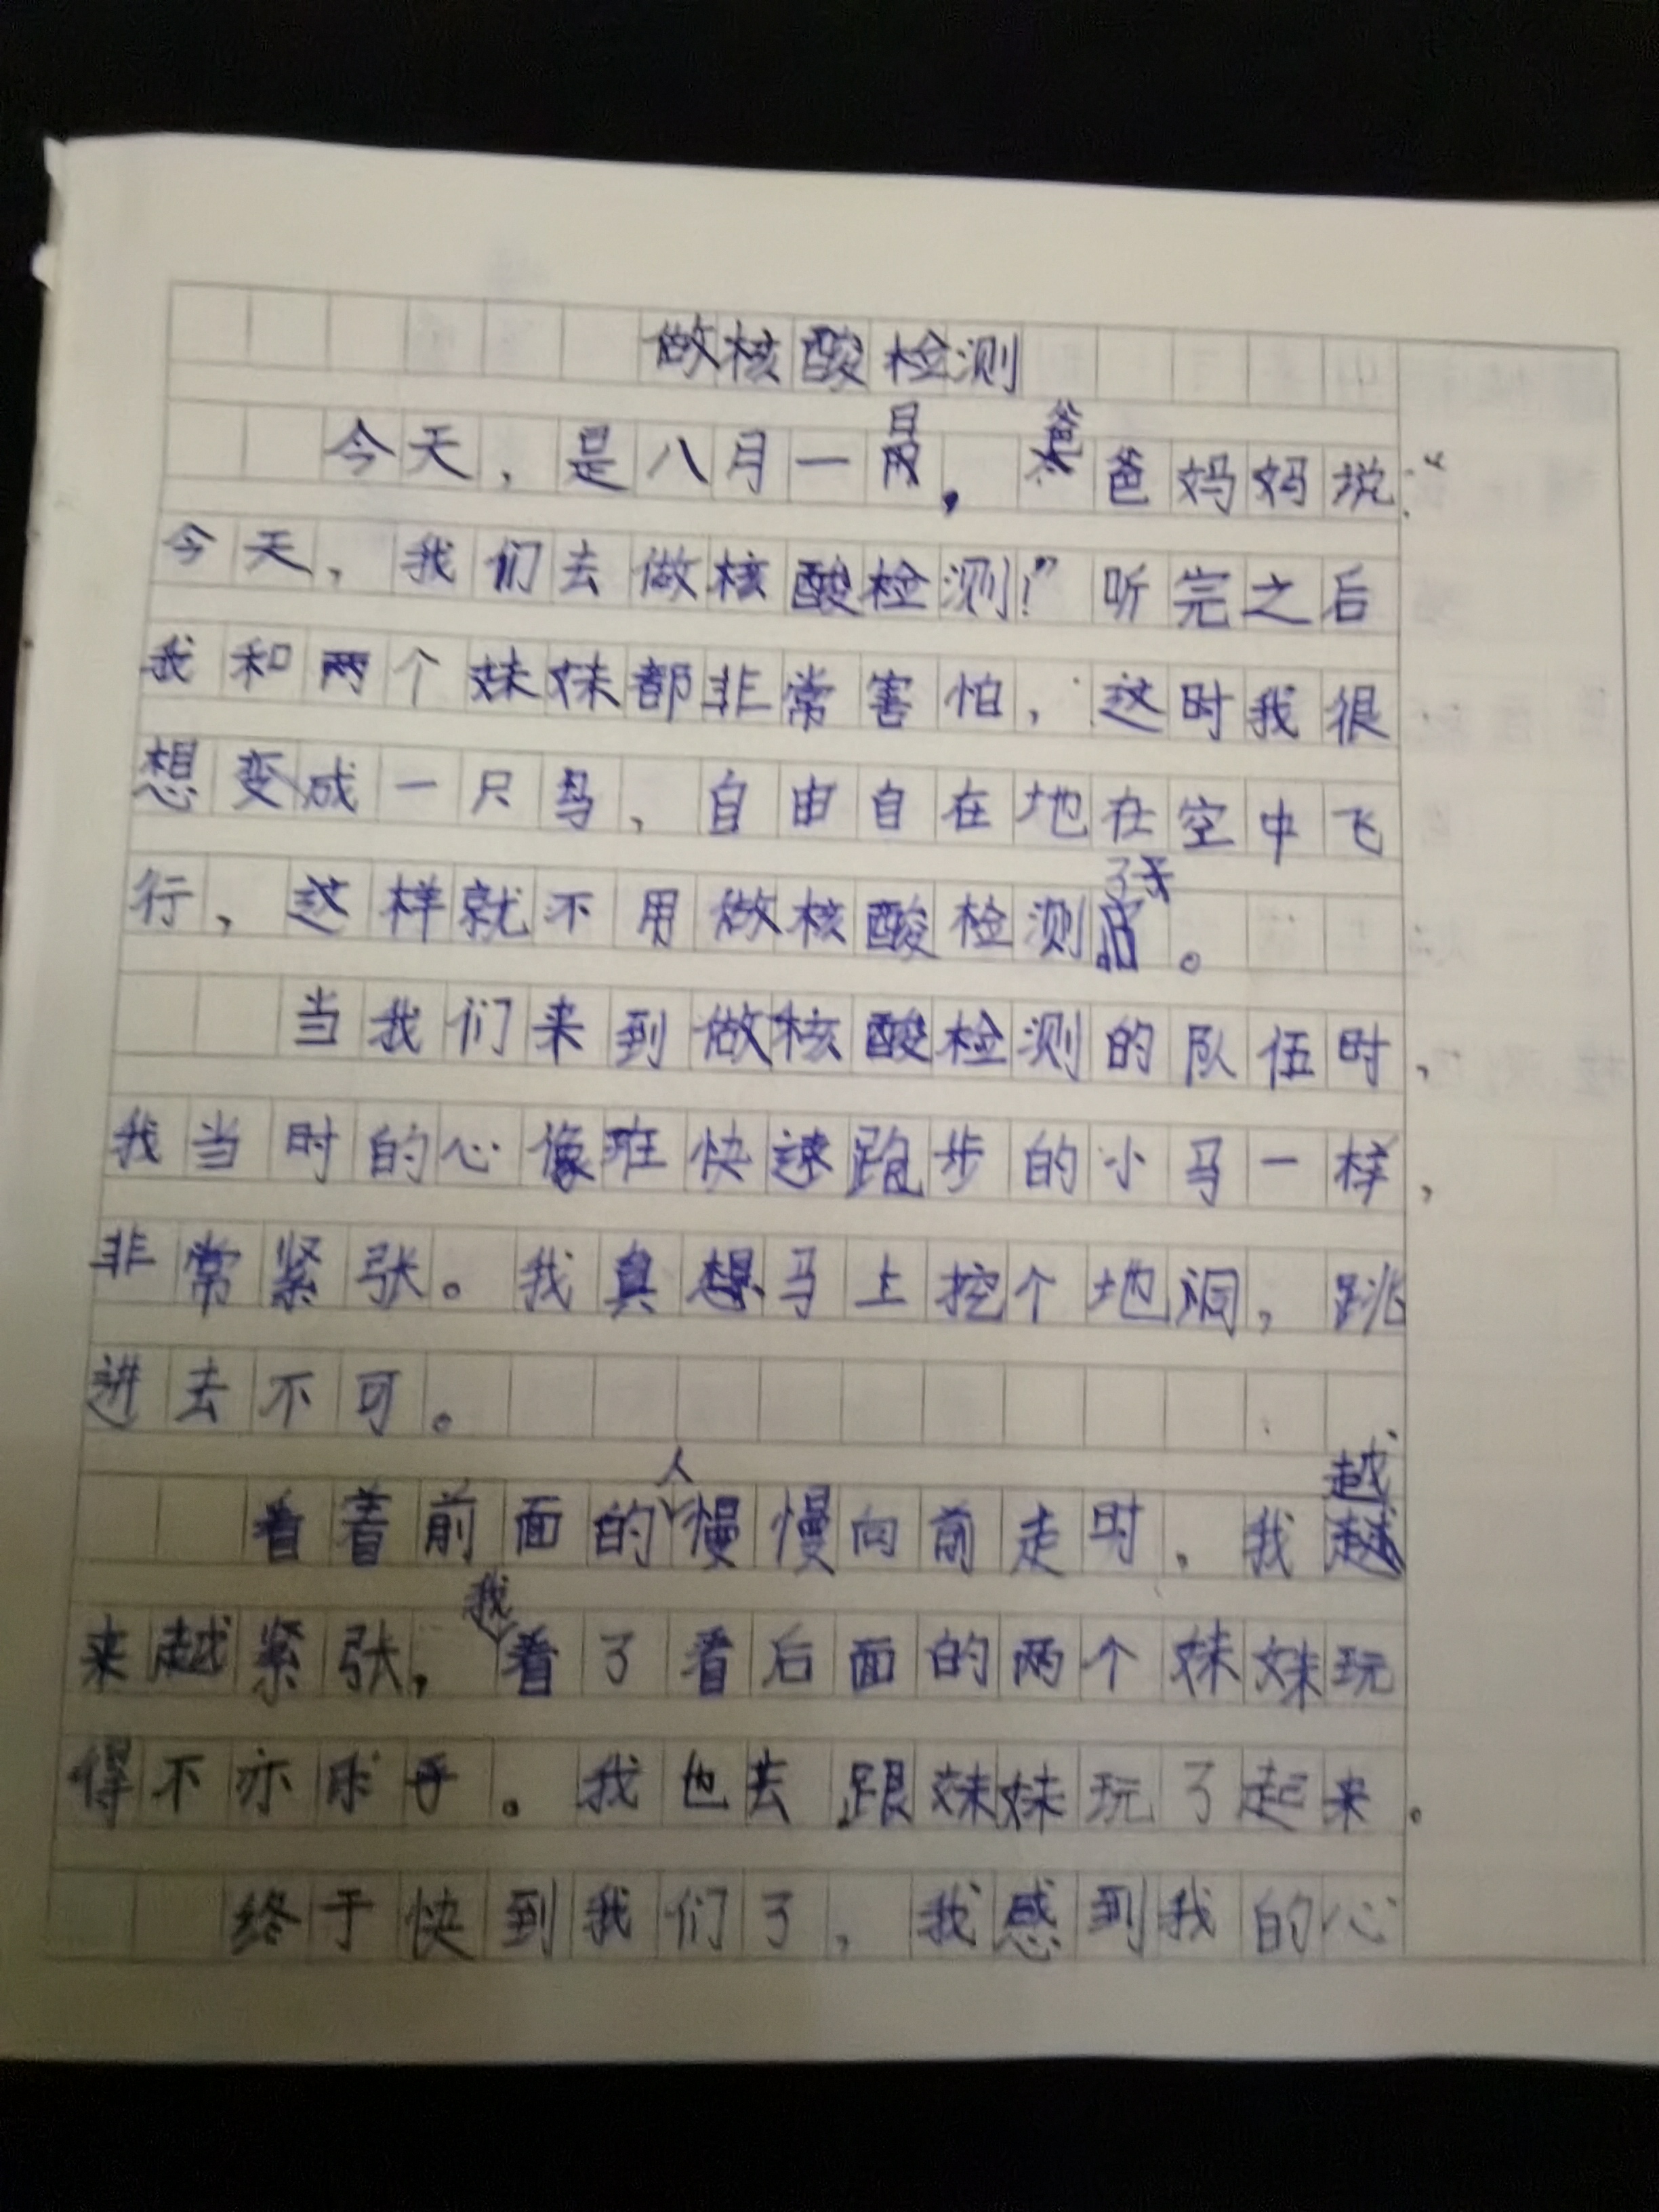 做核酸检测
今天，是八月一日，爸爸妈妈说：“
今天，我们去做核酸检测！”听完之后
我和两个妹妹都非常害怕，这时我很
想变成一只鸟，自由自在地在空中飞
行，这样就不用做核酸检测了。
当我们来到做核酸检测的队伍时，
我当时的心像在快速跑步的小马一样，
非常紧张。我真想马上挖个地洞，跳
进去不可。
看着前面的人慢慢向前走时，我越
来越紧张，我看了看后面的两个妹妹玩
得不亦乐乎。我也去跟妹妹玩了起来。
终于快到我们了，我感到我的心